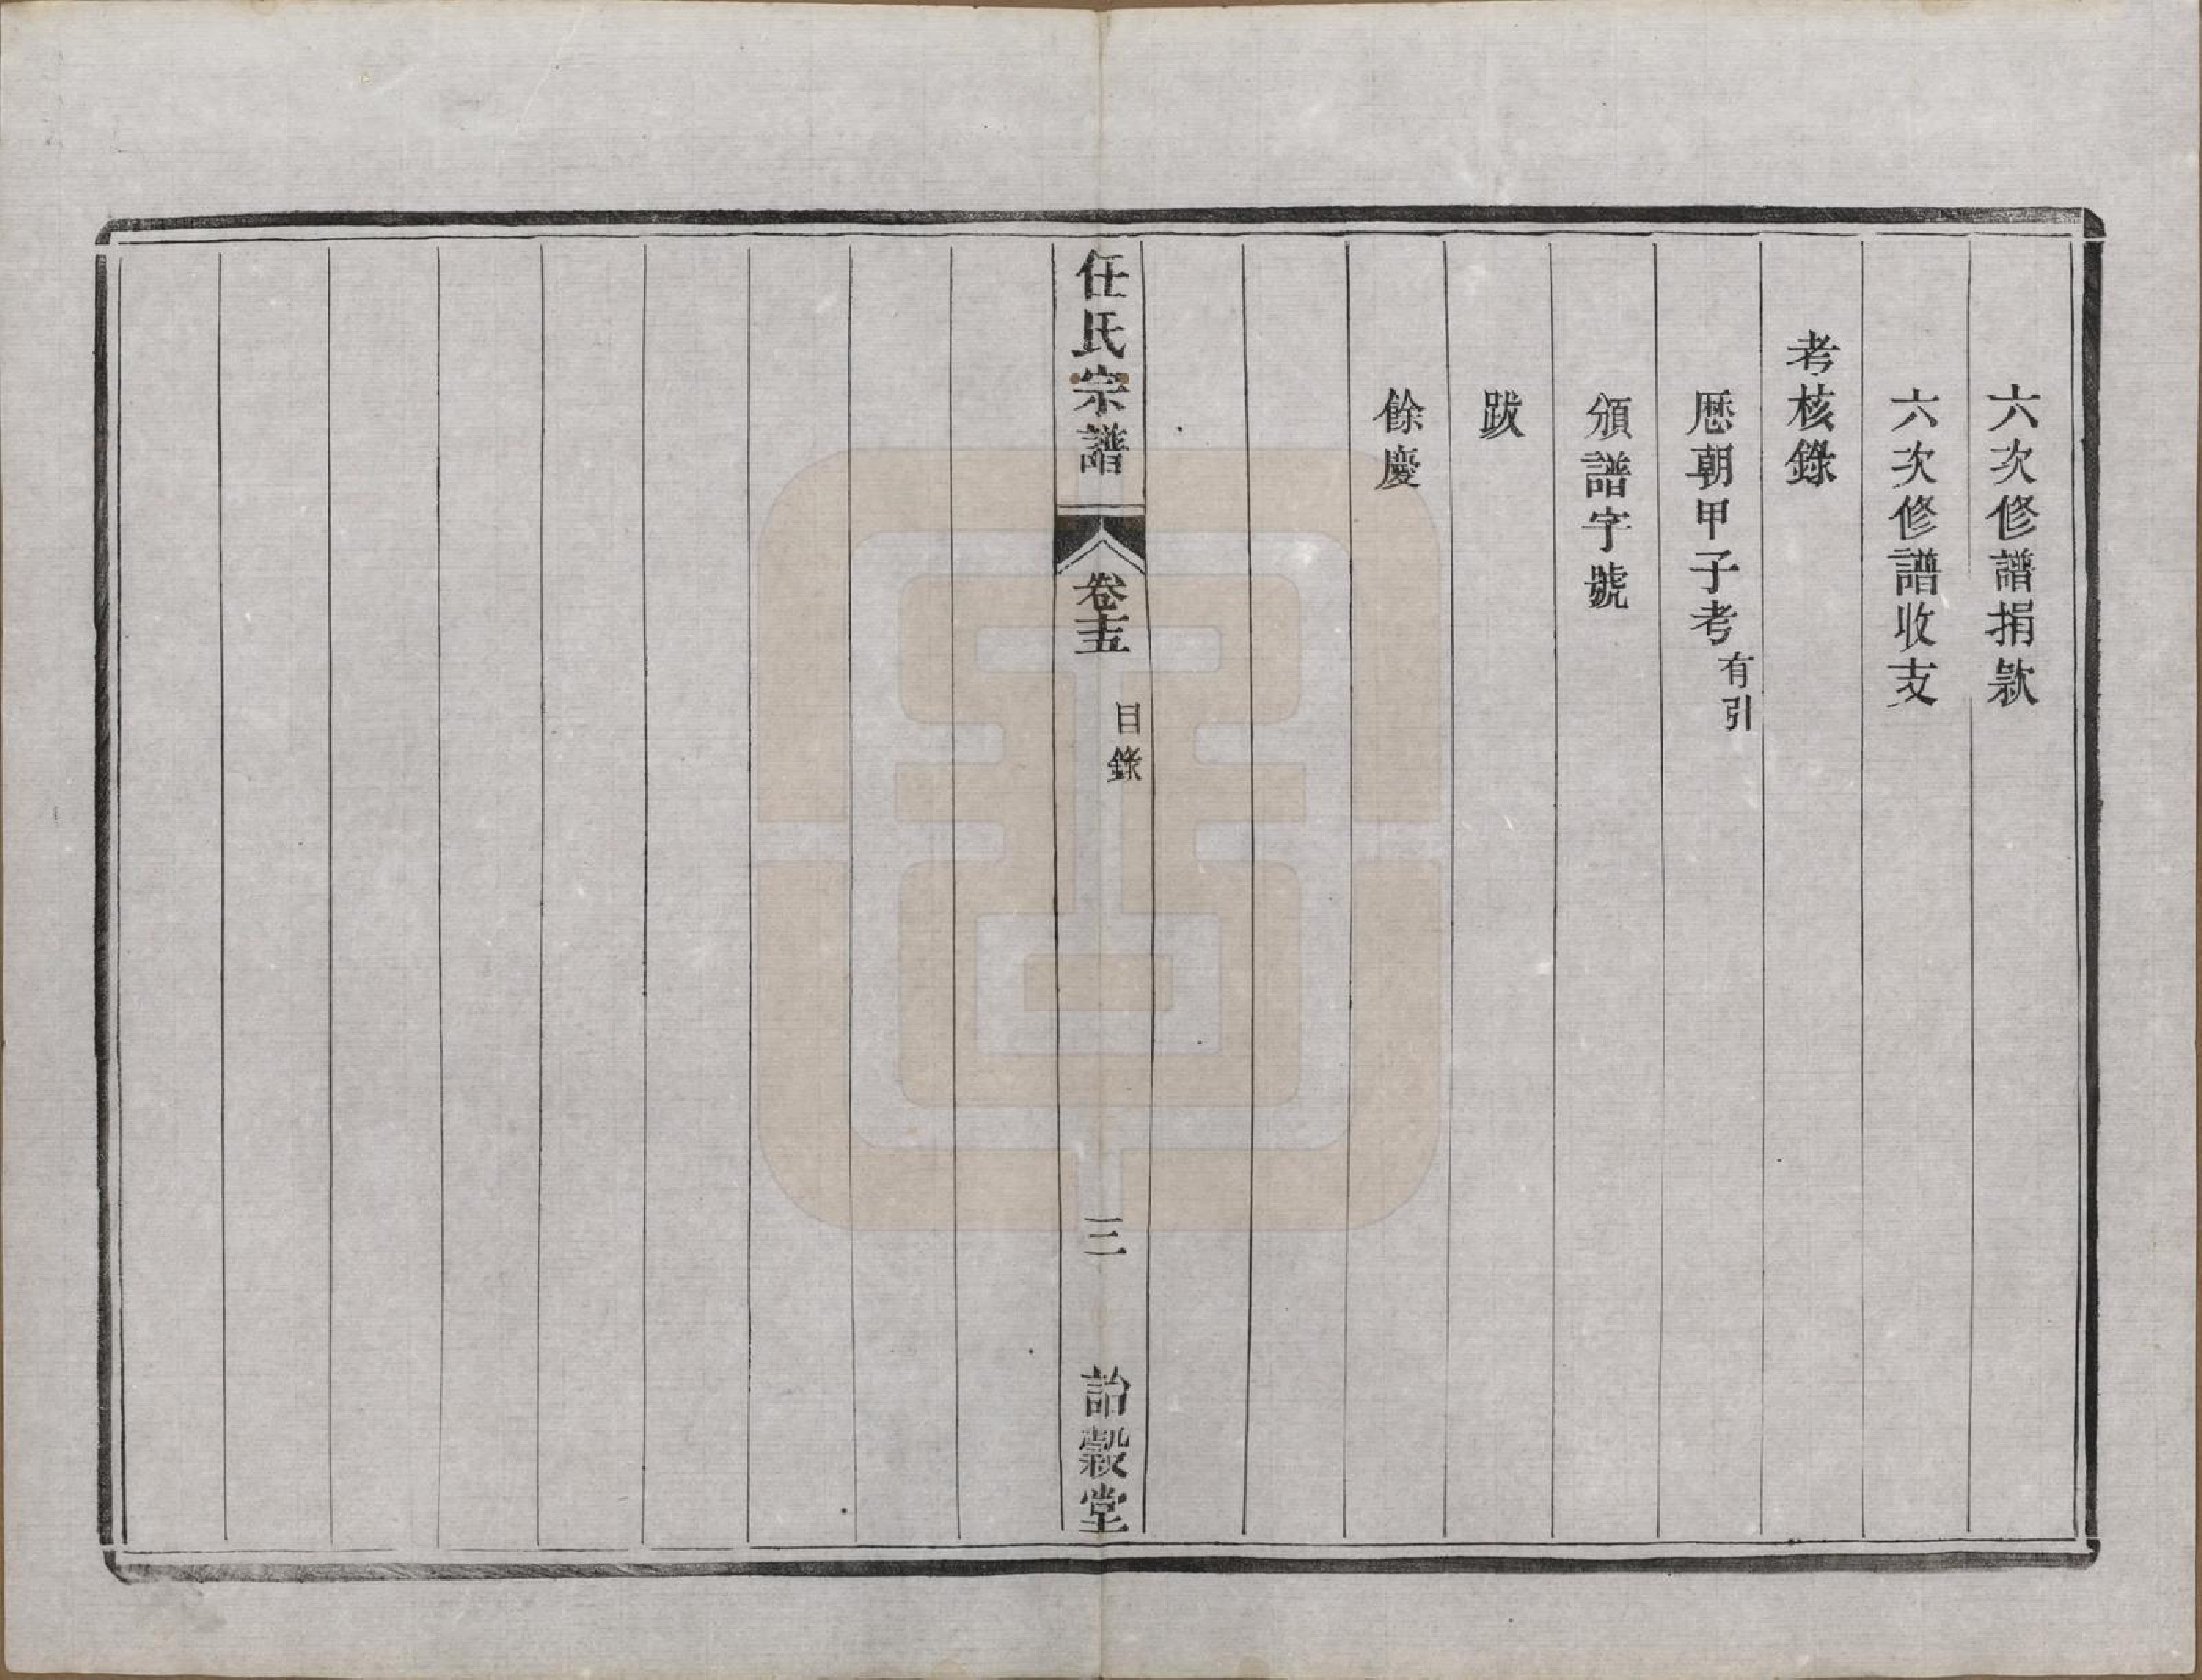 六次修譜捐款
六次修譜收支
考核錄
歷朝甲子考有引
頒譜字號
跋
餘慶
任氏宗譜
卷十五
目錄
三
詒榖堂